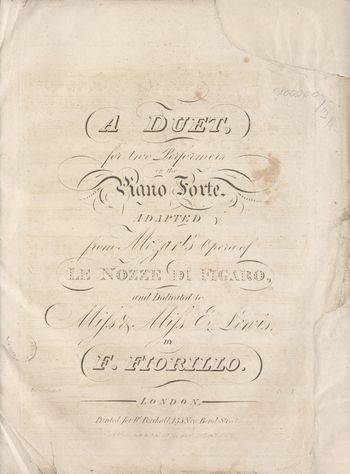 A DUET,
for two Performers
on the
Piano Forte.
ADAPTED
from Mozart's Opera of
LE NOZZE DI FIGARO,
and Dedicated to
Miss & Miss E. Lewis,
BY
F. FIORILLO.
LONDON.
Printed for Rt. Birchall, 133 New Bond Street.